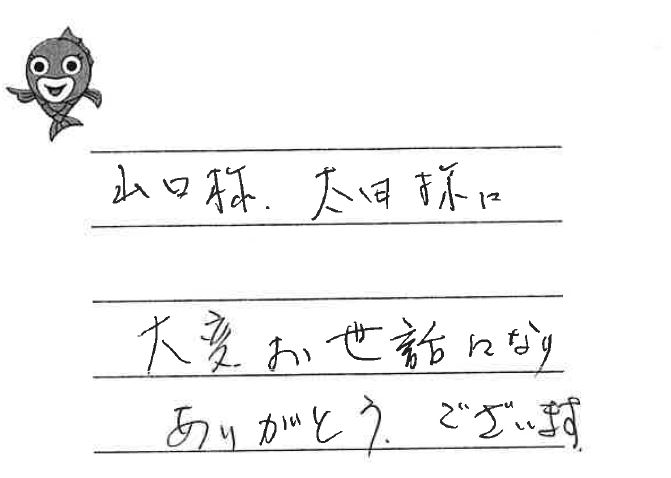 山口様、太田様に
大変お世話になり
ありがとう、ございます